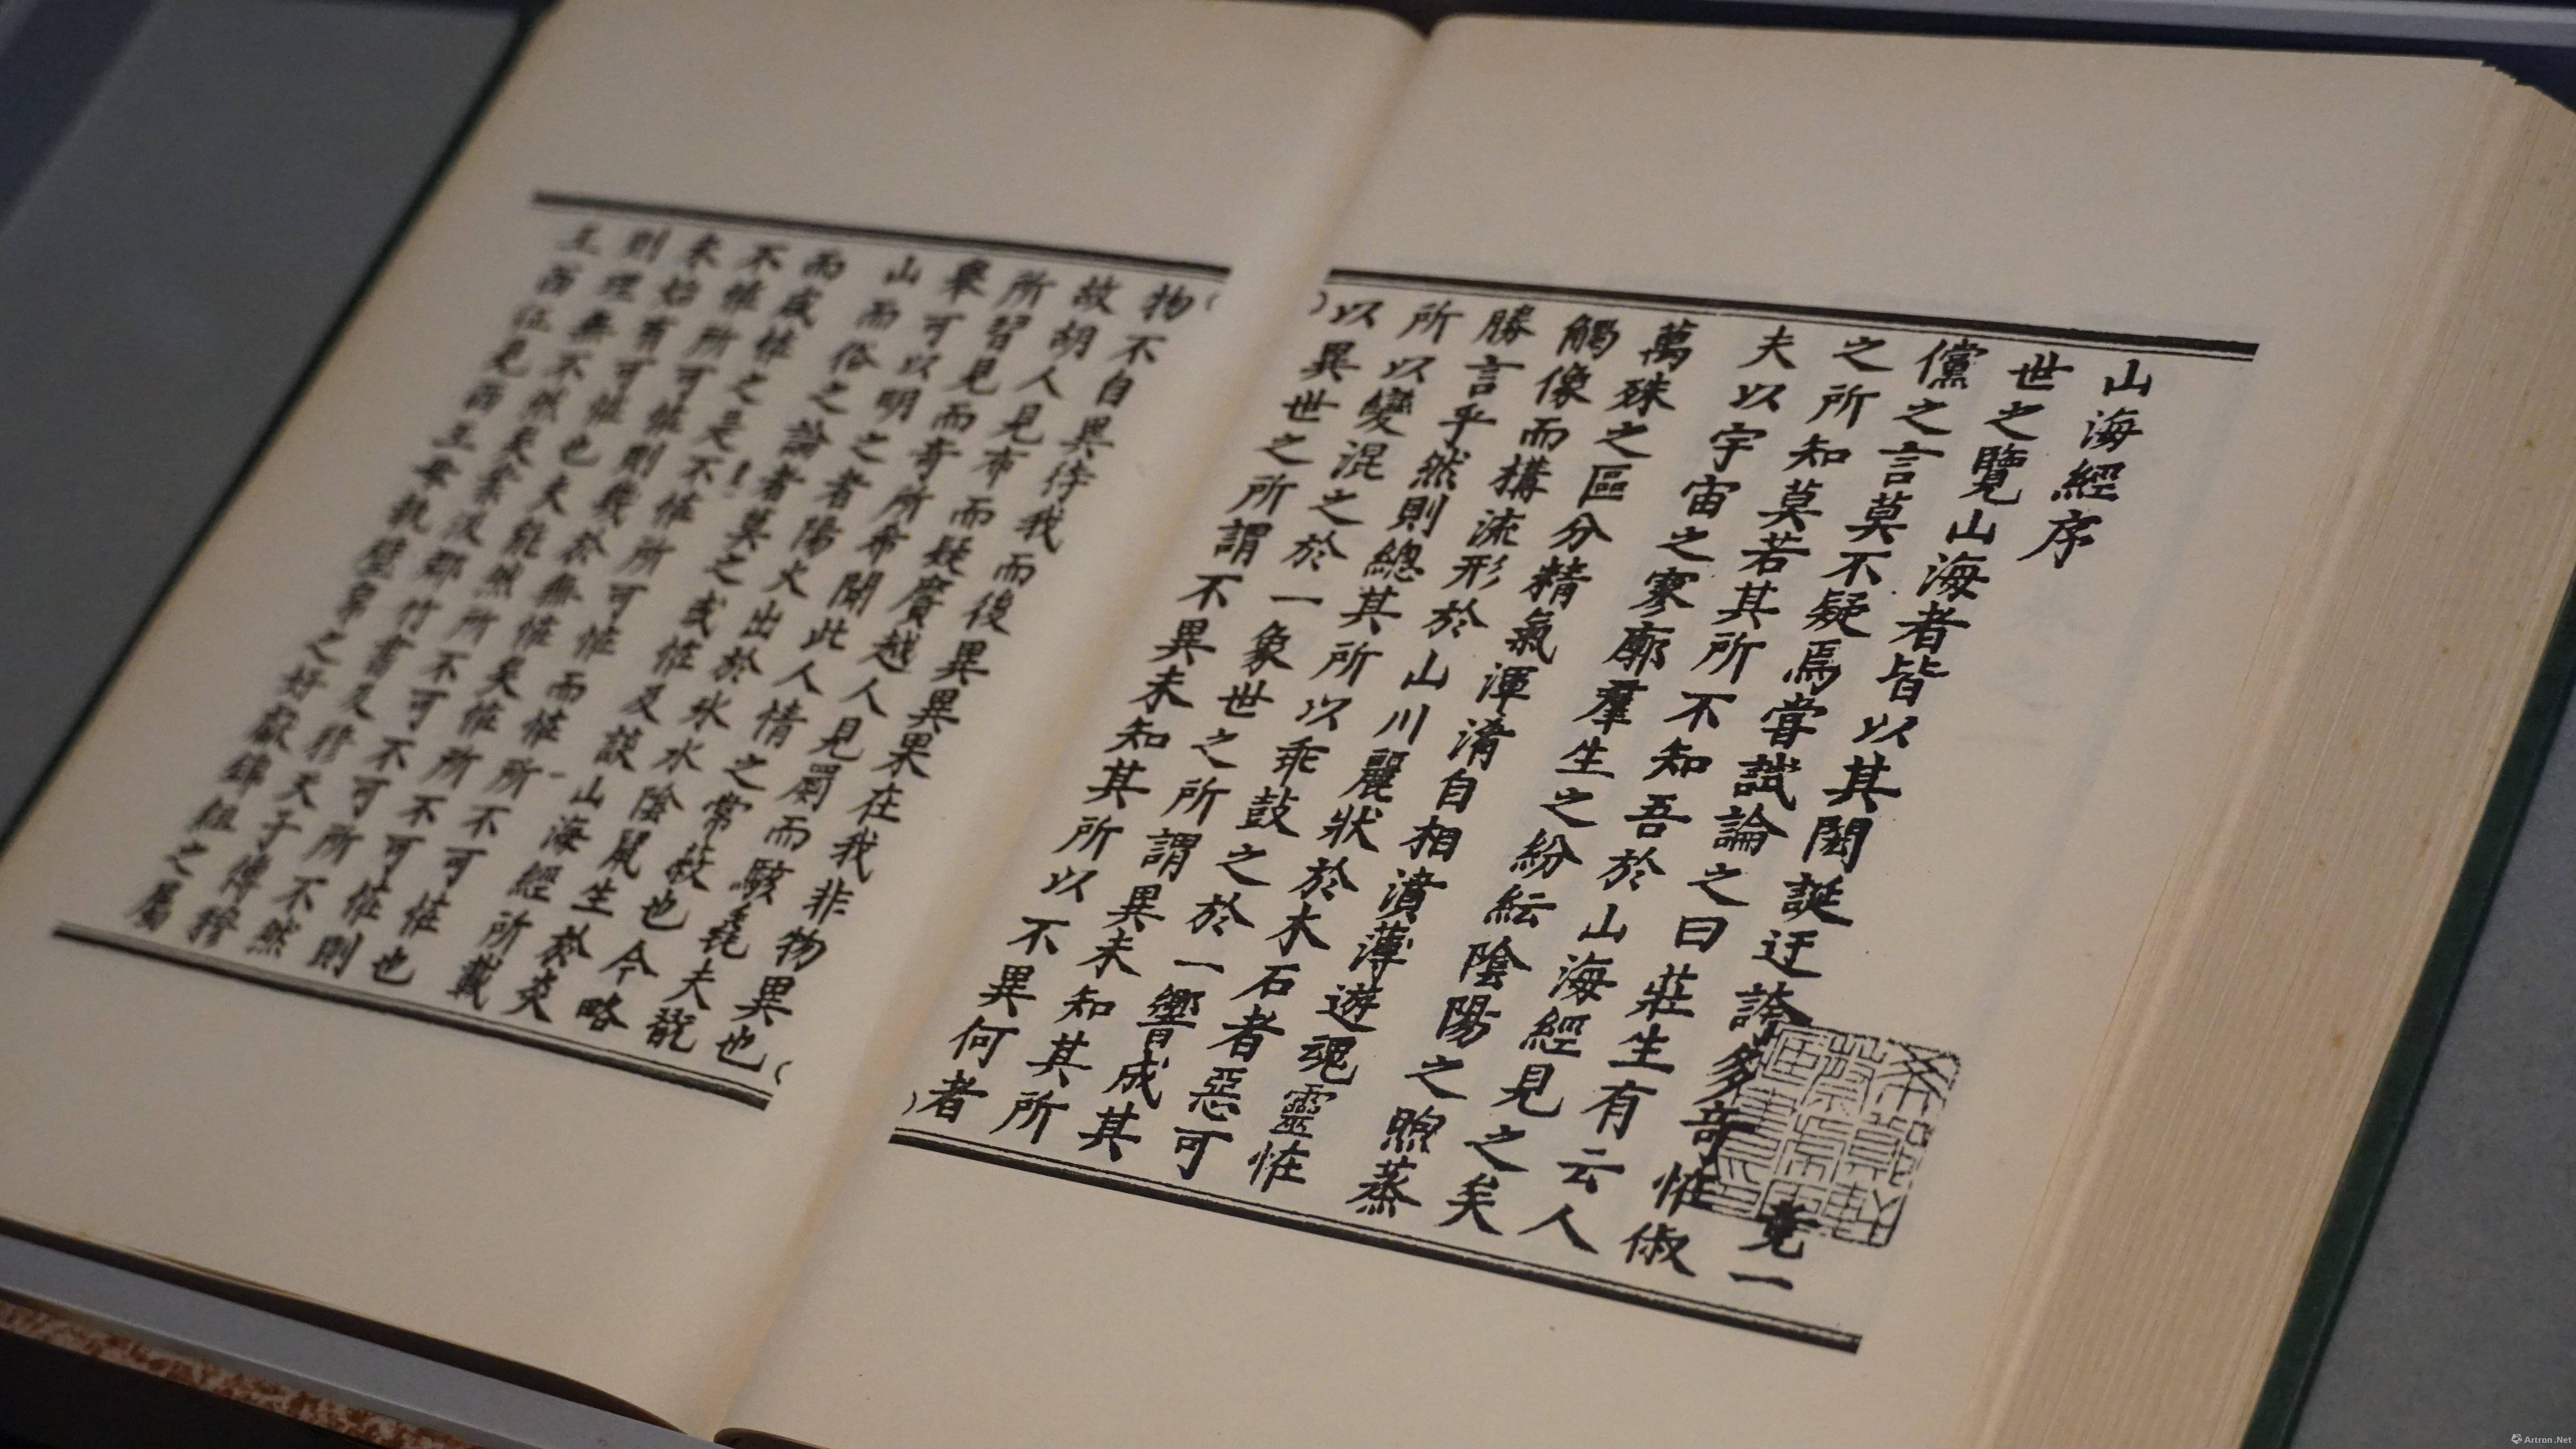 山海經序 竟一
世之覽山海者皆以其閎誕迂誇多奇恠俶
儻之言莫不疑焉嘗試論之曰莊生有云人
之所知莫若其所不知吾於山海經見之矣
夫以宇宙之寥廓羣生之紛紜陰陽之煦蒸
萬殊之區分精氣渾淆自相濆薄遊魂靈恠
觸像而構流形於山川麗狀於木石者惡可
勝言乎然則總其所以乖鼓之於一響成其
所以變混之於一象世之所謂異未知其所
以異世之所謂不異未知其所以不異何者
物不自異待我而後異異果在我非物異也
故胡人見布而疑黂越人見罽而駭毳夫翫
所習見而奇所希聞此人情之常蔽也今略
舉可以明之者陽火出於氷水陰鼠生於炎
山而俗之論者莫之或恠及談山海經所載
而咸恠之是不恠所可恠而恠所不可恠也
不恠所可恠則幾於無恠矣恠所不可恠則
未始有可恠也夫能然所不可不可所不可然
則理無不然矣案汲郡竹書及穆天子傳穆
王西征見西王母執璧帛之好獻錦組之屬
Artron.Net